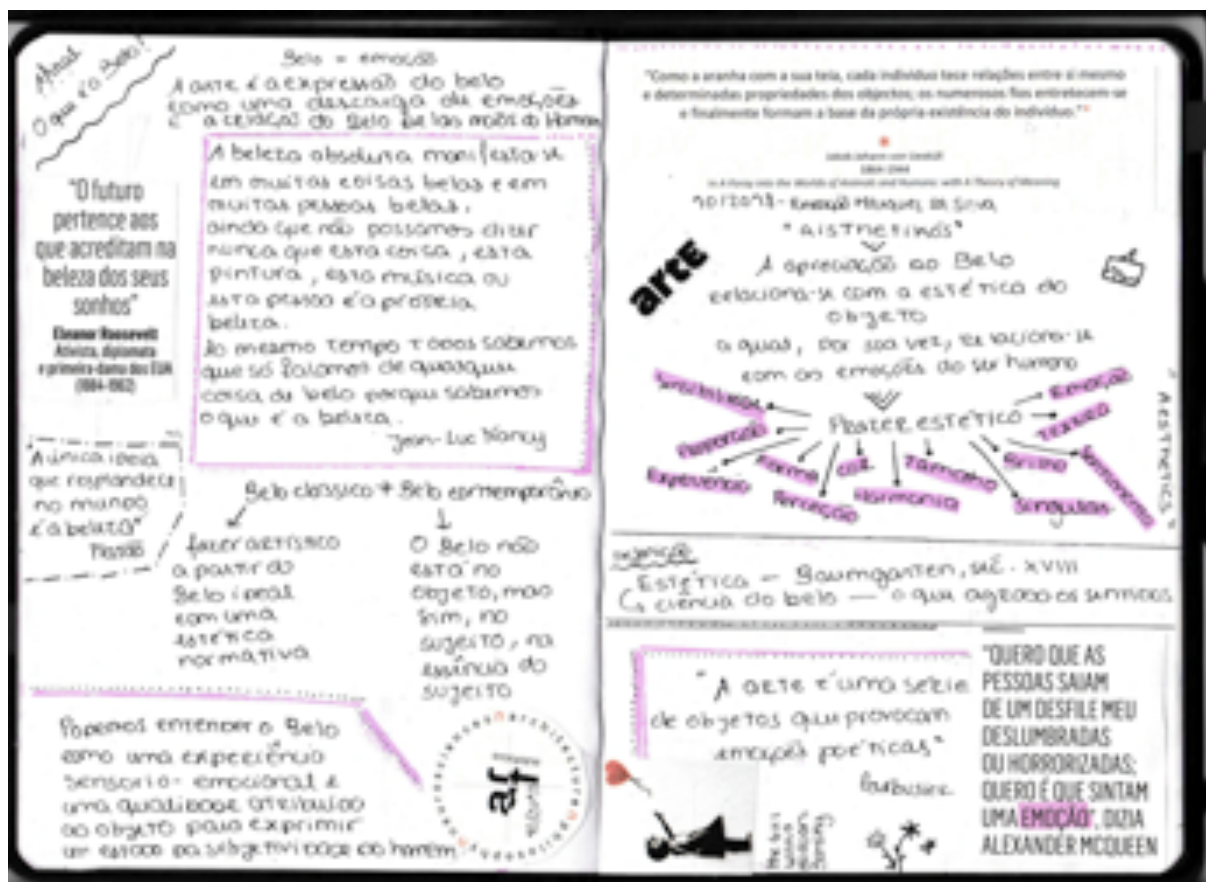 Afinal
O que é o Belo?
Belo = emoção
A arte é a expressão do belo
como uma descarga de emoções
é a criação do Belo pelas mãos do Homem
"O futuro
pertence aos
que acreditam na
beleza dos seus
sonhos"
Eleanor Roosevelt
Ativista, diplomata
e primeira-dama dos EUA
(1884-1962)
A beleza absoluta manifesta-se
em muitas coisas belas e em
muitas pessoas belas,
ainda que não possamos dizer
nunca que esta coisa, esta
pintura, esta música ou
esta pessoa é a própria
beleza.
Ao mesmo tempo todos sabemos
que só falamos de qualquer
coisa de belo porque sabemos
o que é a beleza.
Jean-Luc Nancy
A única ideia
que resplandece
no mundo
é a beleza"
Platão
Belo clássico + Belo contemporâneo
fazer artístico
a partir do
Belo ideal
com uma
estética
normativa
O Belo não
está no
objeto, mas
sim, no
sujeito, na
essência do
sujeito
Podemos entender o Belo
como uma experiência
sensorio-emocional e
uma qualidade atribuída
ao objeto para exprimir
um estado da subjetividade do homem
af
"Como a aranha com a sua teia, cada indivíduo tece relações entre si mesmo
e determinadas propriedades dos objectos; os numerosos fios entretecem-se
e finalmente formam a base da própria existência do indivíduo."
1864-1944
in A Foray into the Worlds of Animals and Humans: with A Theory of Meaning
arte
A apreciação ao Belo
relaciona-se com a estética do
objeto
a qual, por sua vez, relaciona-se
com as emoções do ser humano
Prazer estético
Sensibilidade
Proporção
Expressão
Forma
Perceção
cor
Harmonia
Tamanho
Ritmo
Singular
Sentimento
Textura
Emoção
"AESTHETICS"
definição
Estética - Baumgarten, séc. XVIII
ciência do belo — o que agrada os sentidos
"A arte é uma série
de objetos que provocam
emoções poéticas"
"QUERO QUE AS
PESSOAS SAIAM
DE UM DESFILE MEU
DESLUMBRADAS
OU HORRORIZADAS;
QUERO É QUE SINTAM
UMA EMOÇÃO", DIZIA
ALEXANDER MCQUEEN